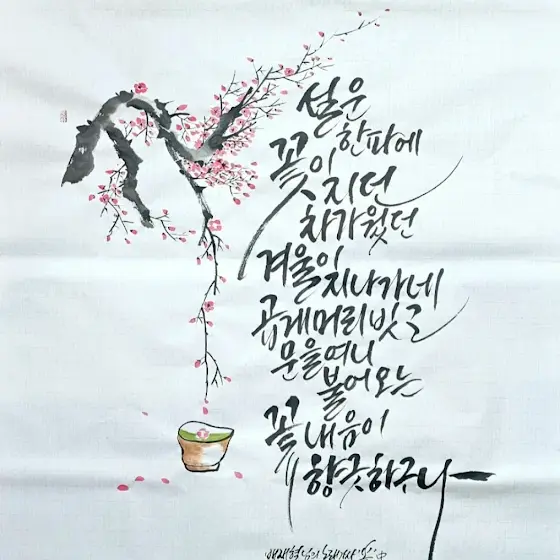 설운
한파에
꽃이 지던
차가웠던
겨울이 지나가네
곱게 머리 빗고
문을 여니
불어오는
꽃내음이
향긋하구나
노래가사 中